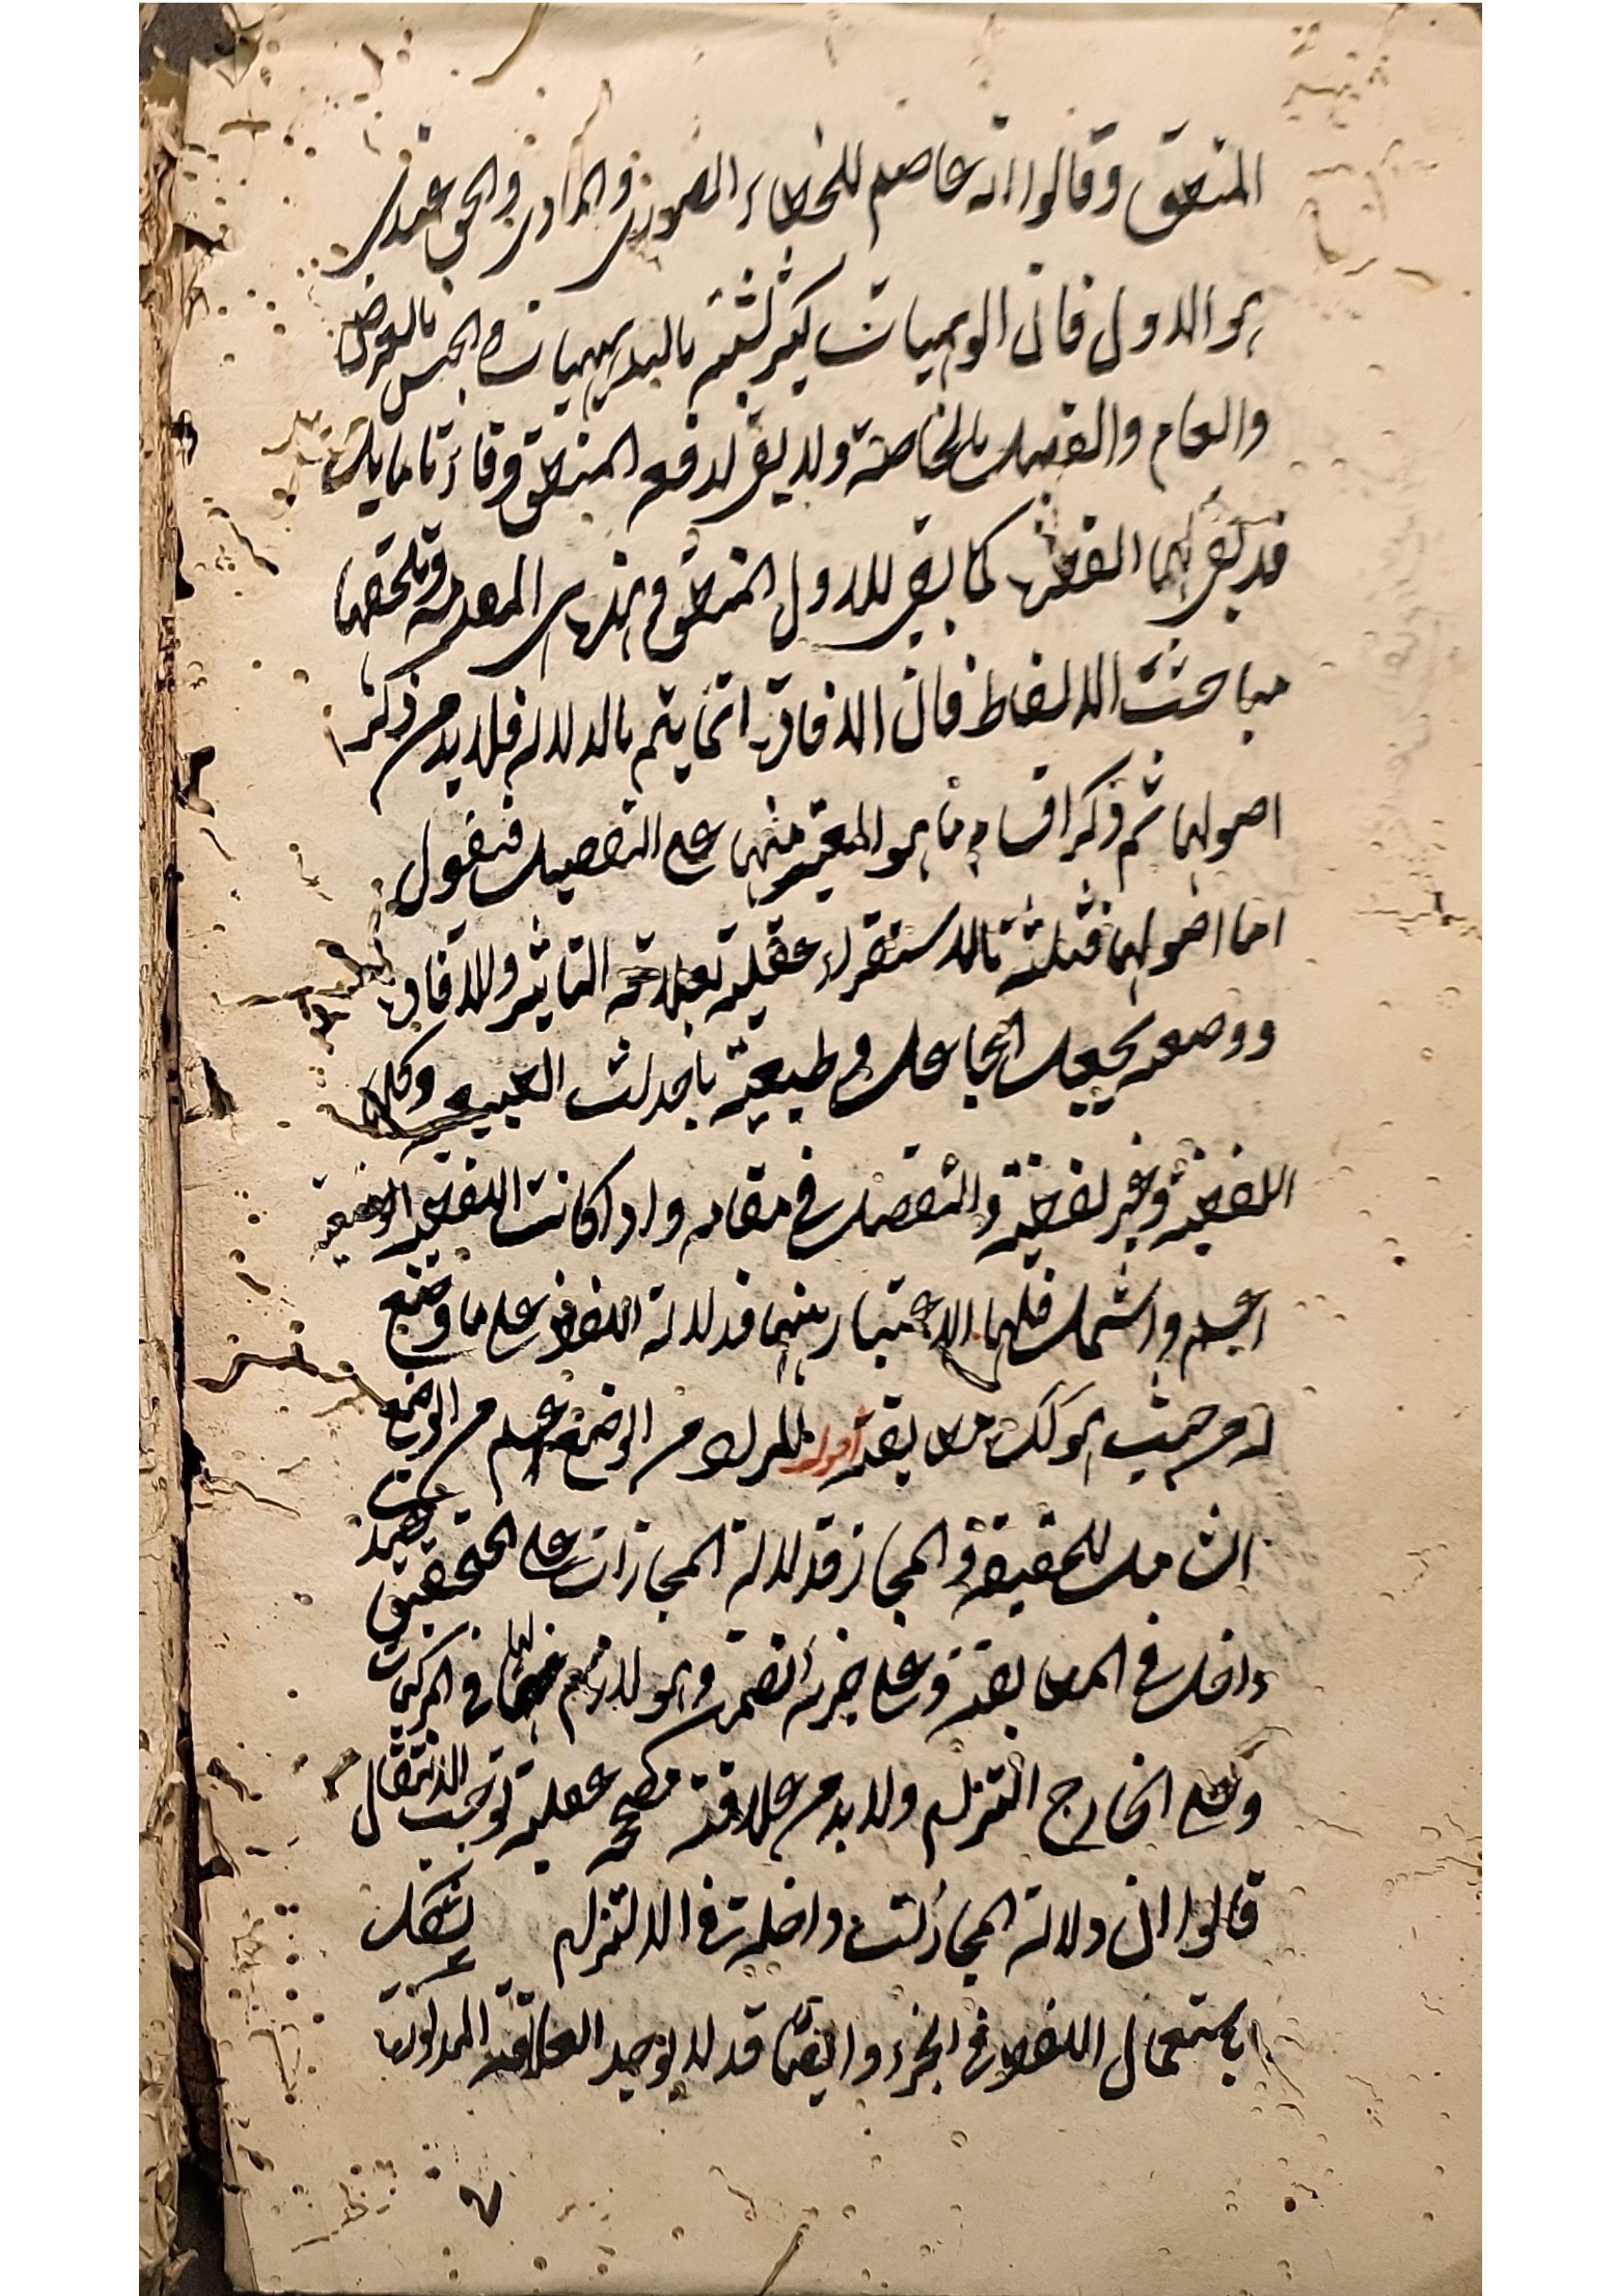 المنطق وقالوا انه عاصم للخطاء الصورى والمادى والحق عندى
هو الاول فان الوهميات كثير يشتبه بالبديهيات والجنس بالعرض
والعام والفصل بالخاصة ولا يفى لدفعه المنطق وقائدنا ما يك
قد يفى لهما الفطرة كما يفى للاول المنطق فهذه هى المقدمة وتلحقها
مباحث الالفاظ فان الافادة انما يتم بالدلالة فلا بد من ذكر
اصولها ثم ذكر اقسام ما هو المعتبر منها على التفصيل فنقول
اما اصولها فثلثة بالاستقراء عقلية بعلاقة التاثير والافادة
ووضعية بجعل الجاعل وطبيعية باحداث الطبيعة وكلها
اللفظية وغير لفظية والتفصيل فى مقامه واذا كانت اللفظية الوضعية
اعم واشمل فلها الاعتبار منها فدلالة اللفظ على ما وضع
له من حيث هو كك مطابقة اقول المراد من الوضع اعم من الوضع
الشامل للحقيقة والمجاز فدلالة المجازات على التحقيق ح
داخل فى المطابقة وعلى جزئه تضمن وهو لازم لها فى المركبات
وعلى الخارج التزام ولا بد من علاقة مصححة عقلية توجب الانتقال
قالوا ان دلالة المجازات داخلة فى الالتزام يشكل
باستعمال اللفظ فى الجزء وايضا قد لا يوجد العلاقة المذكورة